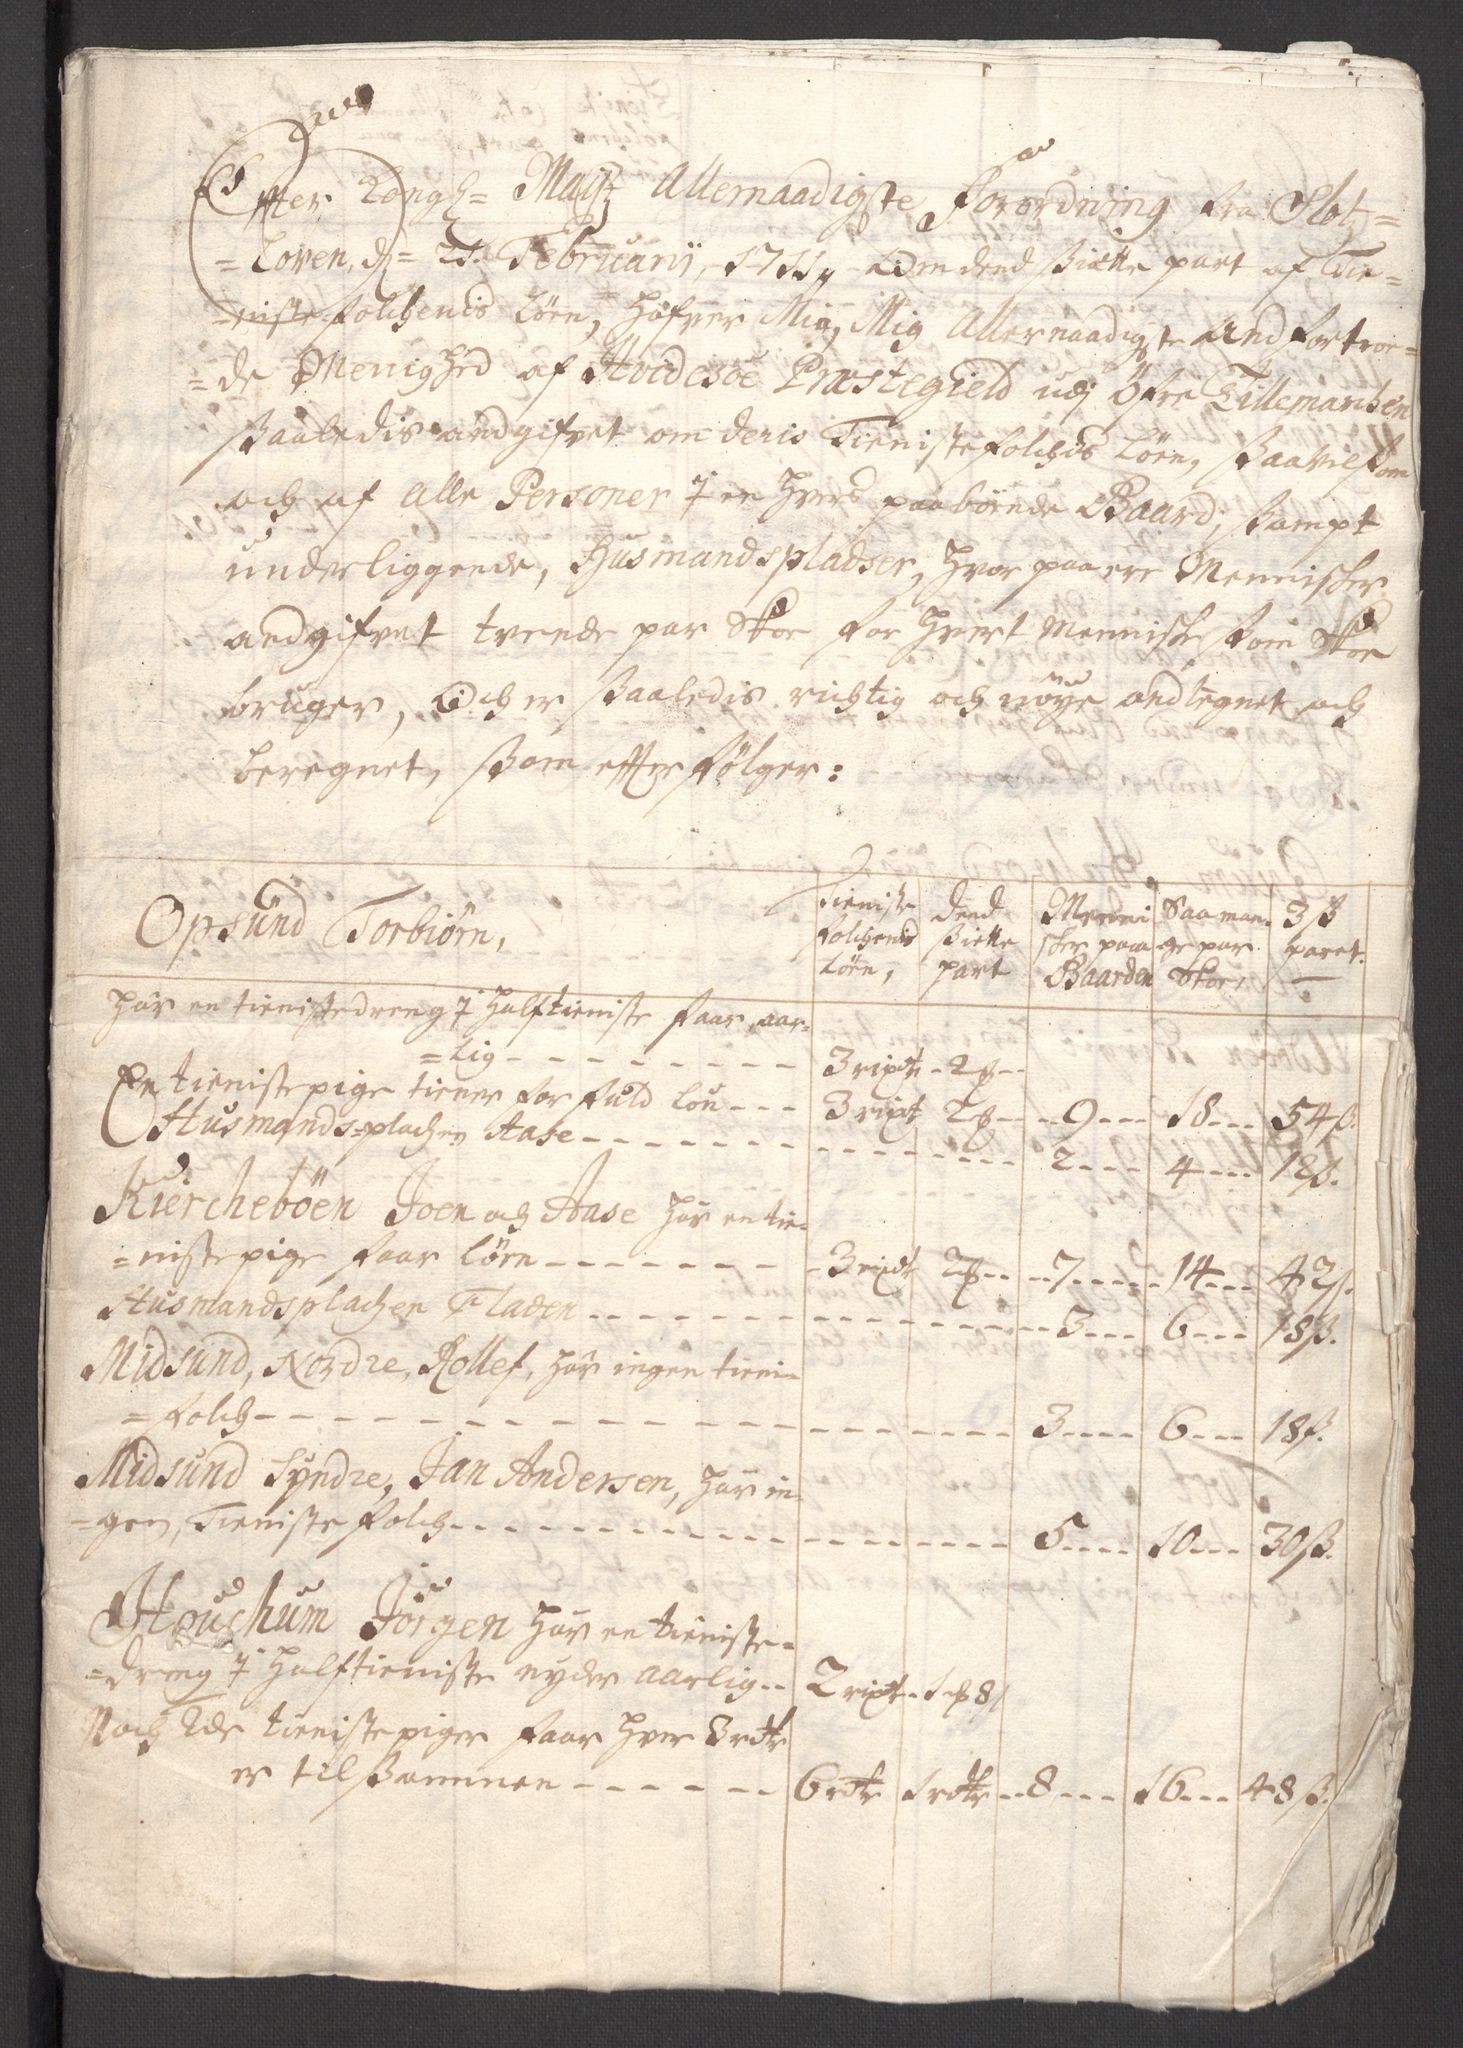 Effter Kongl= Mayst Allernaadigste Forordning fra Slotz=
=Loven, d= 21. Februarij, 1711, Om dend siette part af Tie=
=niste folchenis Löen, hafver Min, Mig Allernaadigste andfortroe=
=de Menighed af Hvidesöe Præstegield udj Öfre Tillemarchen
saaledis andgifvet om deris Tienistefolchis Löen, saavelsom
och af alle Personer i en hvers paaböende Gaard, sampt
underliggende, Husmandspladser, hvor paa ere Mennischer
andgifvet tvende par Skoe for hvert Mennische som Skoe
bruger, Och er saaledis richtig och nöye andtegnet och
beregnet, som effter fölger:
Opsund Torbiörn,
Tieniste folchenis Löen,
Dend siette part
Menni scher paaa Gaarden
Saa man= ge par Skoe,
3 ß paret.
har en tienistedreng i halftieniste faar aar=
=lig - - - 3 rixdr - 2
En tienistepige tiener for fuld Lön - - - 3 rixdr 2 - 9 - - 18 - - 54 ß.
Husmands=pladsen Aase - - - 2 - - 4 - - 12 ß.
Kiercheböen Joen och Aase har en tie=
=nistepige faar Löen - - - 3 rixdr 2 - - 7 - - 14 - - 42 ß.
Husmandspladsen Fladen - - - 3 - - 6 - - 18 ß.
Midsund, Nordre, Rollef, har ingen tieni=
=folch - - - 3 - - 6 - - 18 ß.
Midsund Syndre, Jan Andersen, har in=
=gen, Tieniste folch - - - 5 - - 10 - - 30 ß.
Houchum Jörgen har en tieniste=
=dreng i halftieniste nyder aarlig - - 2 rixdr - 1 8
Noch 2de tienistepiger faar hver 3 rdr
er tilsammen - - - 6 rdr 1 rdr - 8 - - 16 - - 48 ß.